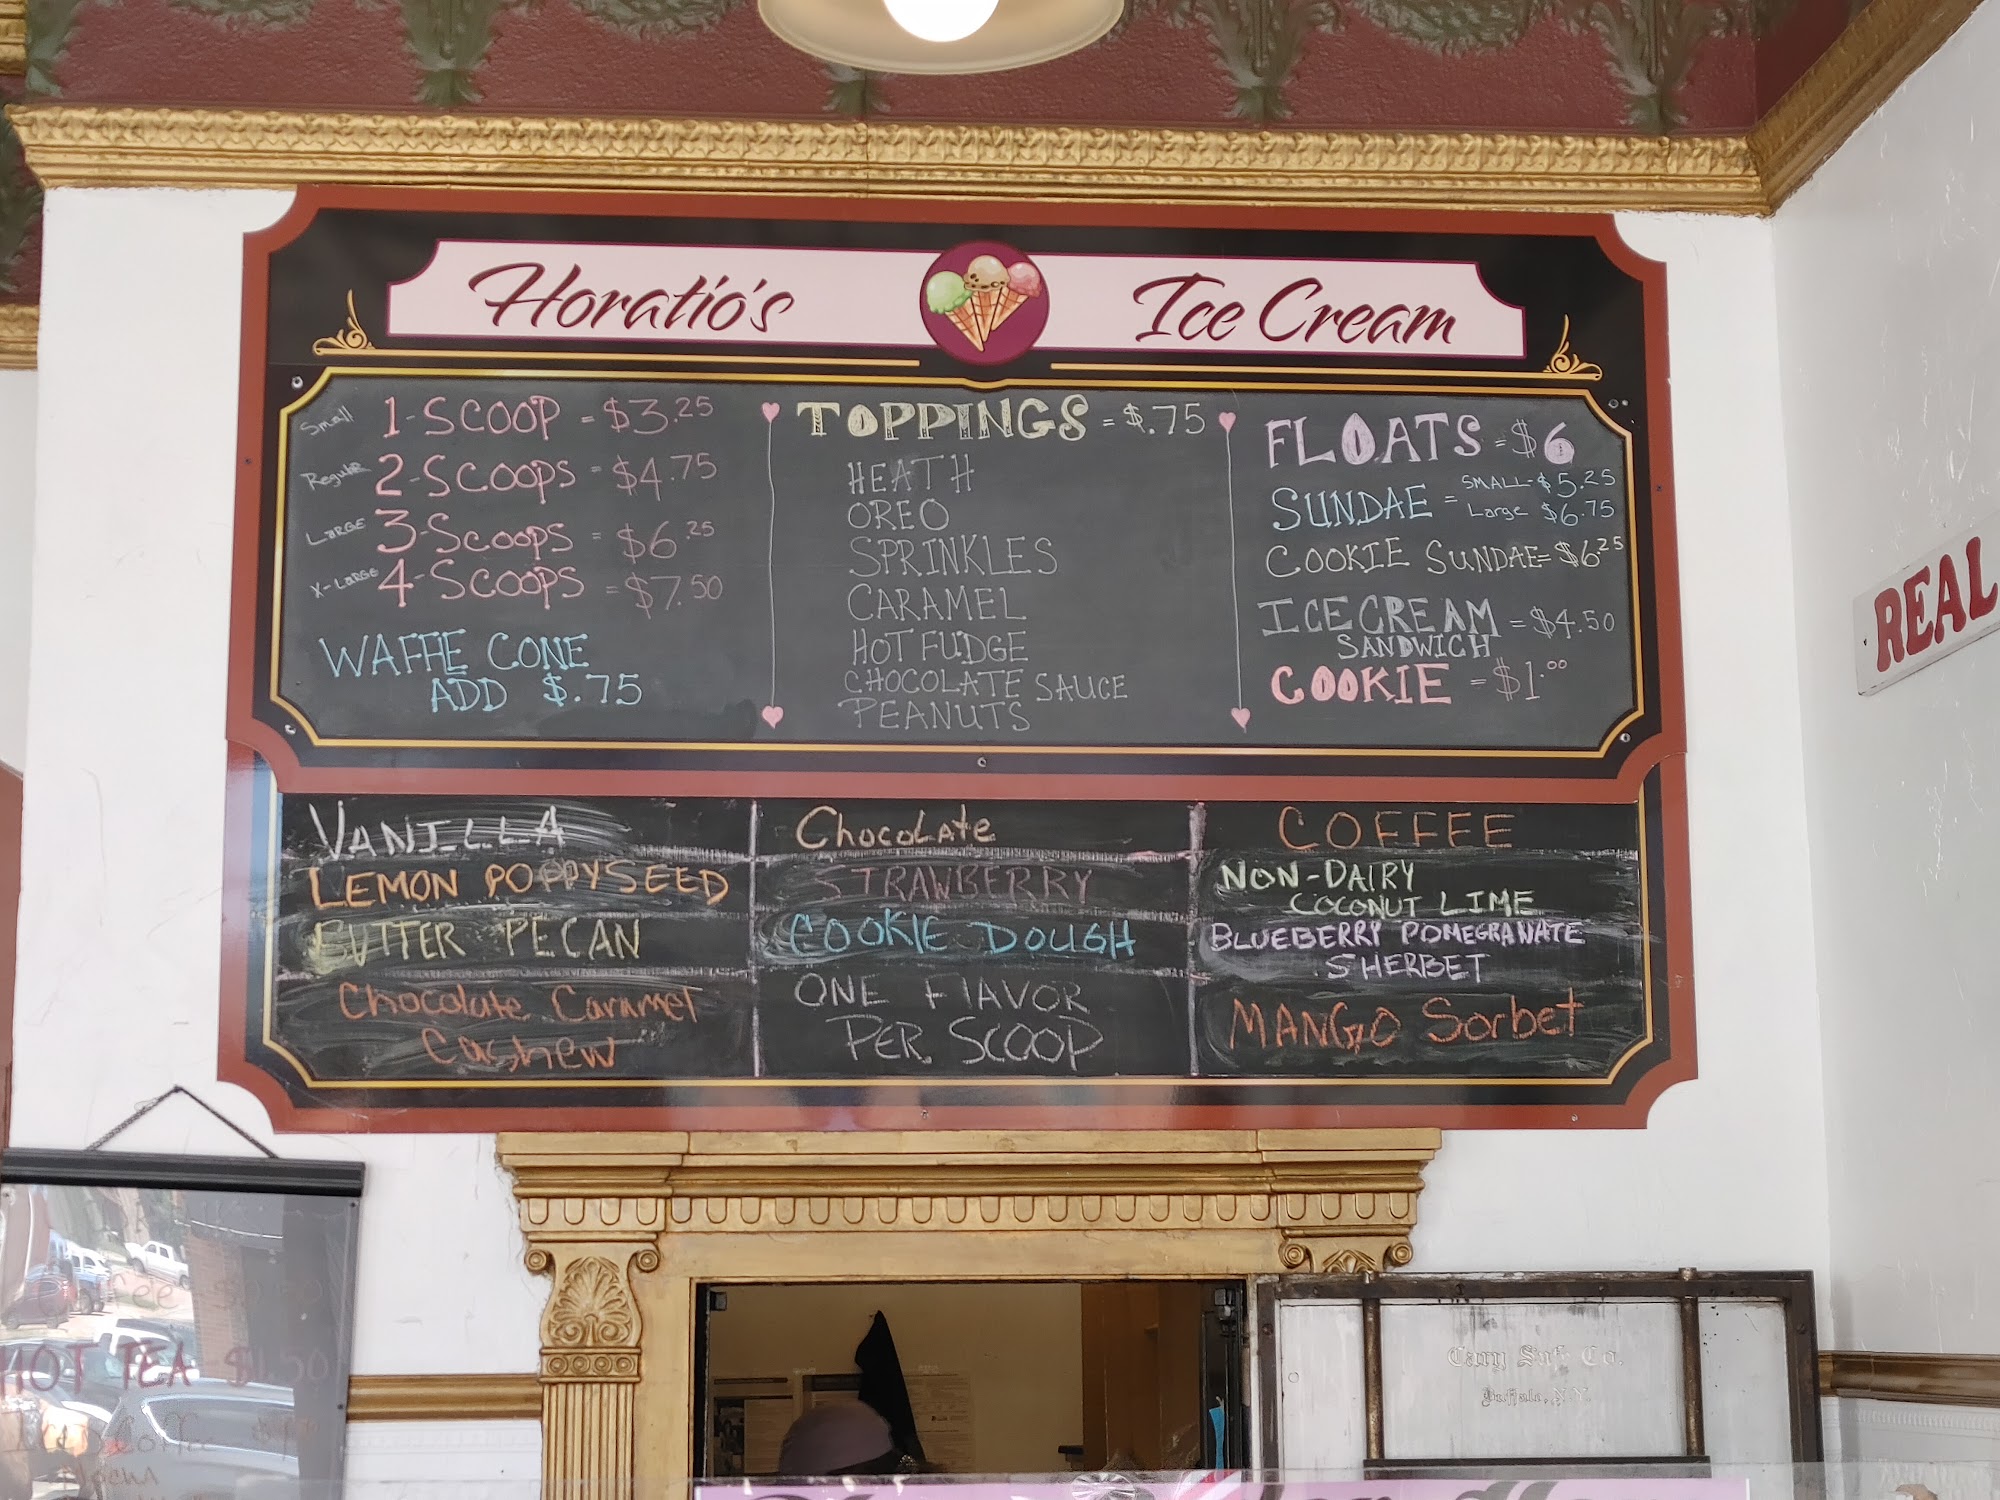 Horatio's Ice Cream
Small 1-SCOOP = $3.25
Regular 2-SCOOPS = $4.75
LARGE 3-SCOOPS = $6.25
X-LARGE 4-SCOOPS = $7.50
WAFFLE CONE
ADD $.75
TOPPINGS = $.75
HEATH
OREO
SPRINKLES
CARAMEL
HOT FUDGE
CHOCOLATE SAUCE
PEANUTS
FLOATS = $6
SUNDAE = SMALL - $5.25
Large $6.75
COOKIE SUNDAE = $6.25
ICE CREAM = $4.50
SANDWICH
COOKIE = $1.00
VANILLA
LEMON POPPYSEED
BUTTER PECAN
Chocolate Caramel
Cashew
Chocolate
STRAWBERRY
COOKIE DOUGH
ONE FLAVOR
PER SCOOP
COFFEE
NON-DAIRY
COCONUT LIME
BLUEBERRY POMEGRANATE
SHERBET
MANGO Sorbet
REAL
Coffee
HOT TEA
Iced Coffee
Mocha
Cary Safe Co.
Buffalo, N.Y.